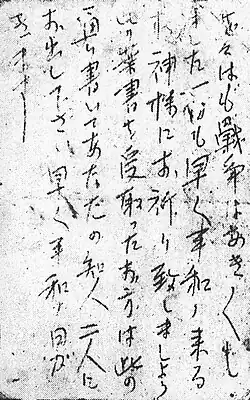 我々はも戦争にあき〱し
ました一日も早く平和の来る
様神様にお祈り致しましよう
此の葉書を受取ったお方は此の
通り書いてあなたの知人二人に
お出し下さい 早く平和の日が